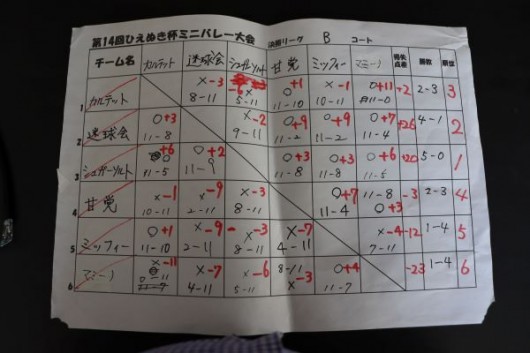 第14回ひえぬき杯ミニバレー大会 決勝リーグ B コート
チーム名 カルテット 迷球会 シュガーソルト 甘党 ミッフィー マミーノ 得失点差 勝敗 順位
1 カルテット ×-3 8-11 -6 × 5-11 ○+1 11-10 ×-1 10-11 ○+11 11-0 +2 2-3 3
2 迷球会 ○+3 11-8 ×-2 9-11 ○+9 11-2 ○+9 11-2 ○+7 11-4 +26 4-1 2
3 シュガーソルト +6 11-5 ○+2 11-9 ○+3 11-8 ○+3 11-8 ○+6 11-5 +20 5-0 1
4 甘党 ×-1 10-11 ×-9 2-11 ×-3 8-11 ○+7 11-4 11-8 ○+3 -3 2-3 4
5 ミッフィー ○+1 11-10 ×-9 2-11 ×-3 8-11 ×-7 4-11 ×-4 7-11 -12 1-4 5
6 マミーノ ×-11 ×-7 4-11 ×-6 5-11 8-11 ×-3 ○+4 11-7 -23 1-4 6